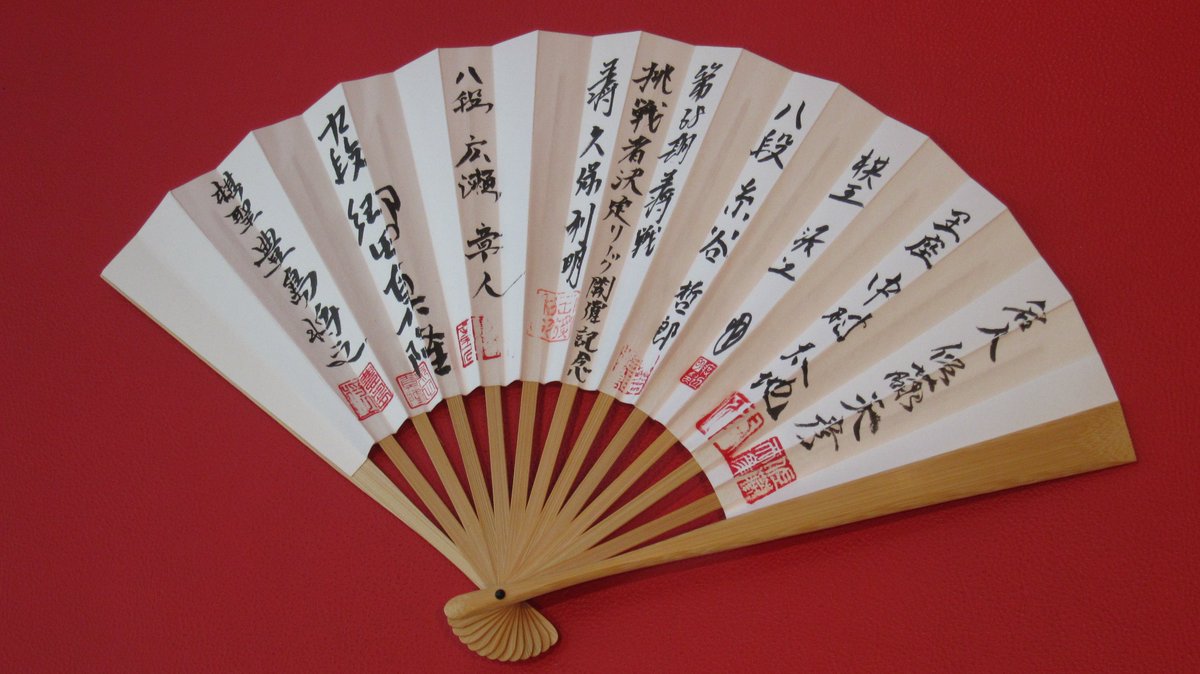 名人 佐藤天彦
王座 中村太地
棋王 渡辺 明
八段 糸谷 哲郎
第68期王将戦
挑戦者決定リーグ開催記念
王将 久保利明
八段 広瀬 章人
九段 郷田真隆
棋聖 豊島将之